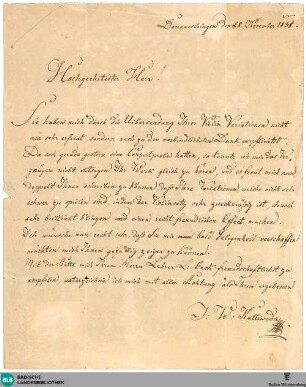 Donaueschingen den 28. November 1838.
Hochgeehrtester Herr!
Sie haben mich durch die Übersendung Ihrer Violin Variationen nicht
nur sehr erfreut, sondern auch zu dem verbindlichsten Dank verpflichtet.
Da wir gerade gestern eine Concertprobe hatten, so konnte ich mir das Ver-
gnügen nicht versagen Ihr Werk gleich zu hören, und es freut mich nun
doppelt Ihnen schreiben zu können, daß Ihre Variationen, welche nicht sehr
schwer zu spielen sind indem der Violinsatz sehr zweckmäßig ist, dennoch
sehr brilliant klingen und einen recht freundlichen Effect machen.
Ich wünsche nun recht sehr, daß Sie mir nun bald Gelegenheit verschaffen
möchten mich Ihnen gefällig zeigen zu können.
Mit der Bitte mich Ihrem Herrn Lehrer L: Erck freundschaftlichst zu
empfehlen unterzeichne ich mich mit aller Achtung als Ihren ergebenen
J. W. Kalliwoda
BLB BADISCHE
LANDESBIBLIOTHEK